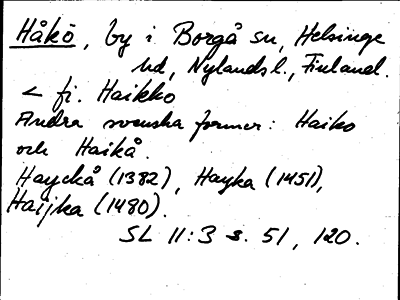 Håkö, by i Borgå sn, Helsinge
hd, Nylands l., Finland.
< fi. Haikko
Andra svenska former: Haiko
och Haikå.
Hayckå (1382), Hayka (1451),
Haijka (1480).
SL 11:3 s. 51, 120.